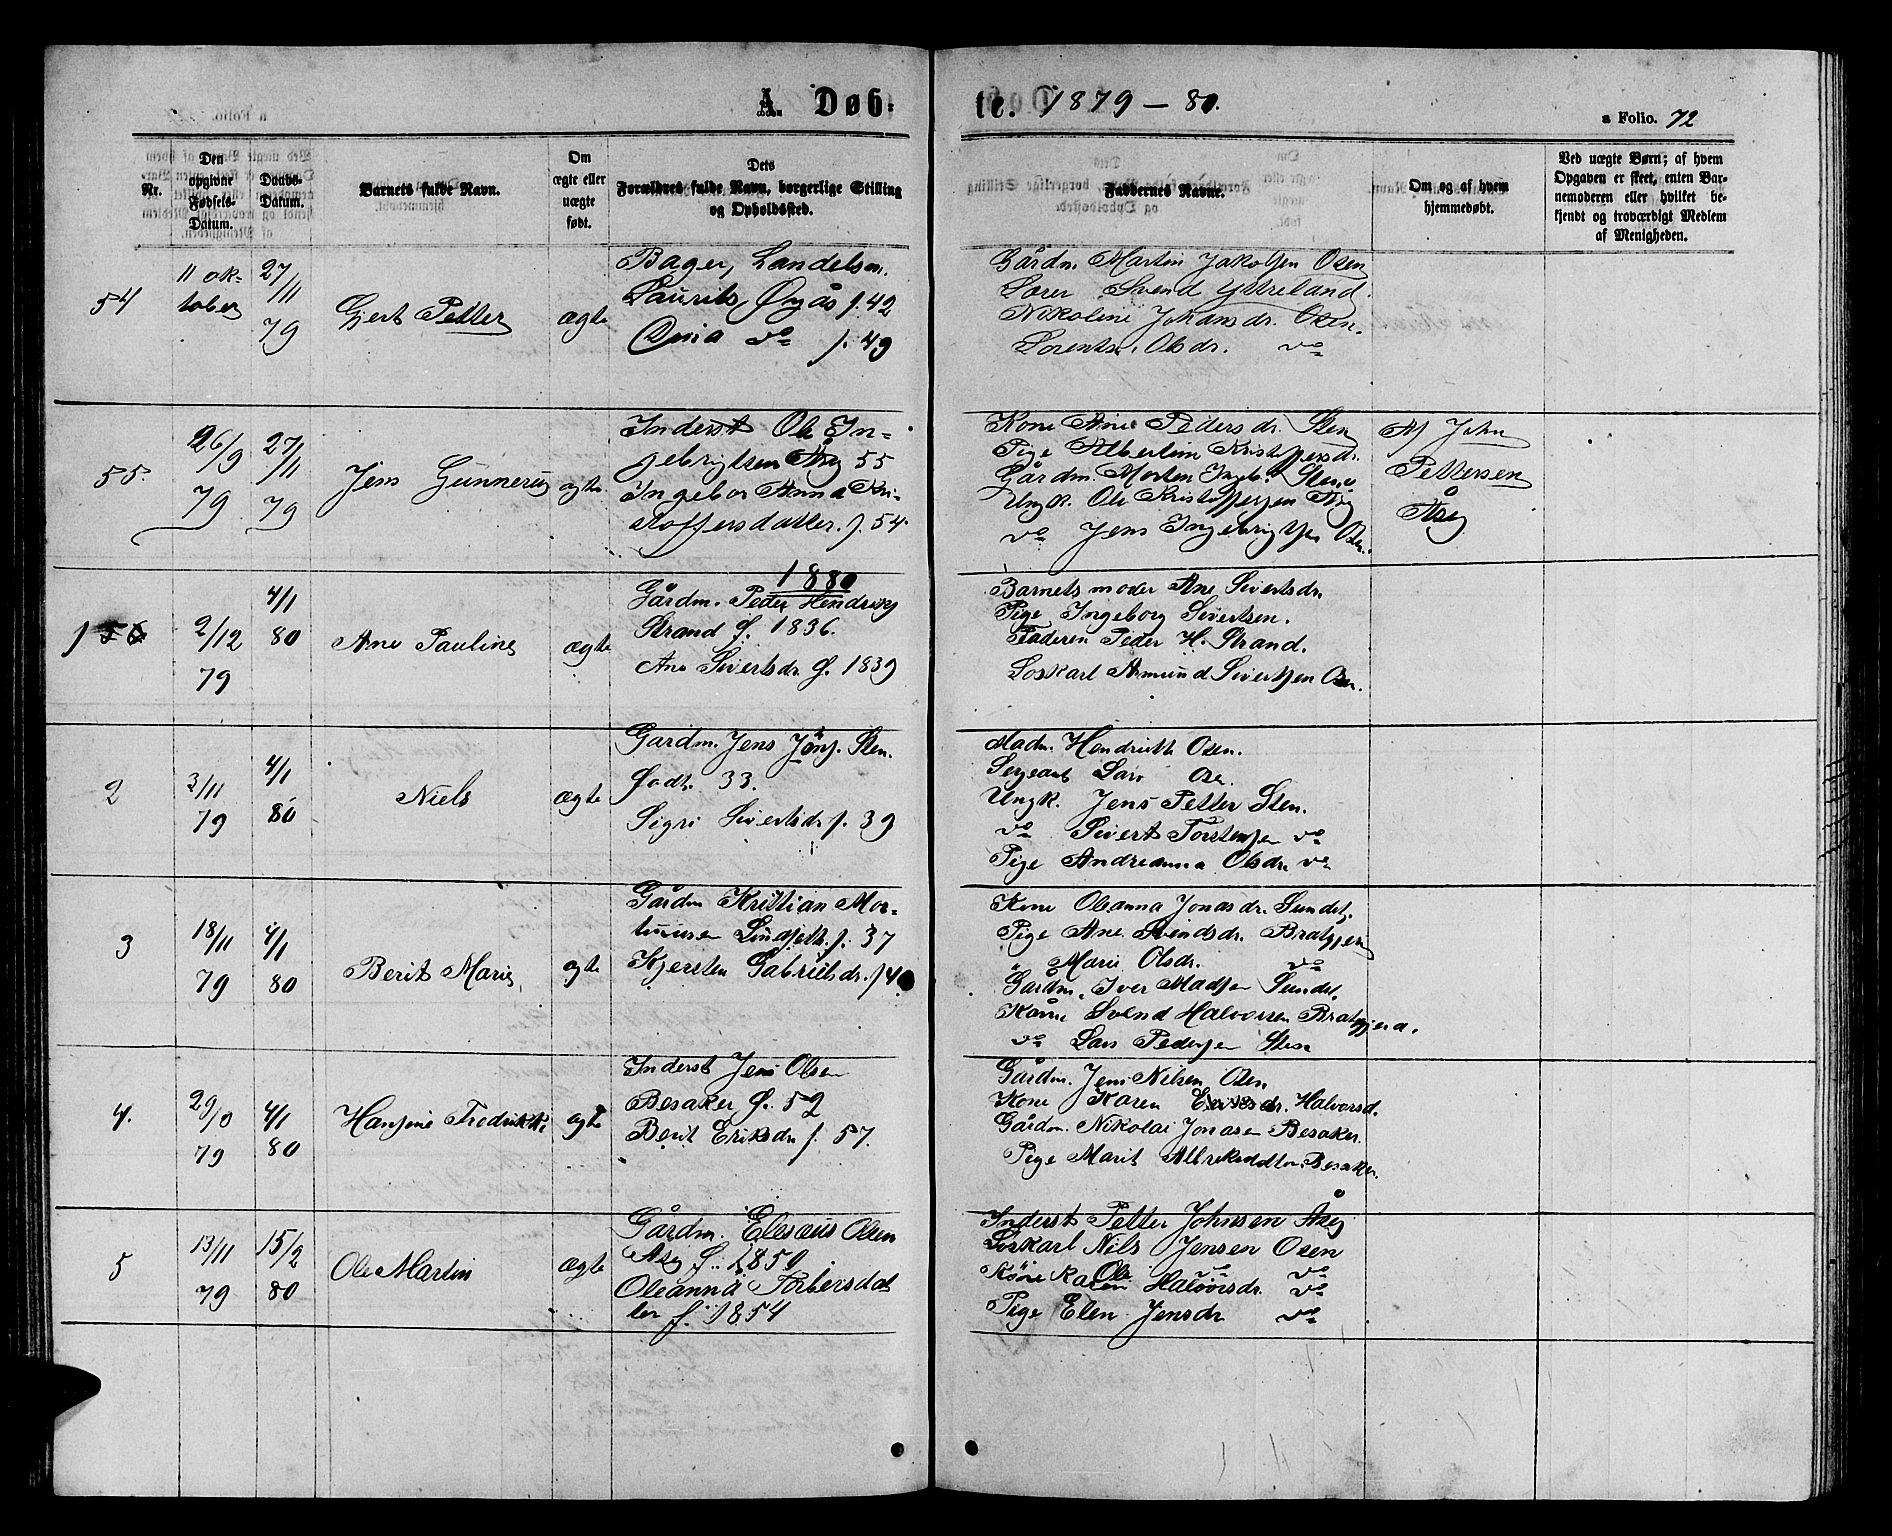 A. Døb-
te. 1879 - 80.
a Folio. 72
Nr.
Den opgivne Fødsels-Datum.
Daabs-Datum.
Barnets fulde Navn.
Om ægte eller uægte født.
Dets Forældres fulde Navn, borgerlige Stilling og Opholdssted.
Faddernes Navne.
Om og af hvem hjemmedøbt.
Ved uægte Børn; af hvem Opgaven er skeet, enten Barnemoderen eller hvilket bekjendt og troværdigt Medlem af Menigheden.
54
11 ok-
tober
27/11
79
Gjert Petter
ægte
Bager, Landelsm.
Laurits Øyås f. 42
do f. 49
Gårdm. Martin Jakobsen Osen
Lærer Svend Ytreland.
Nikoline Johansdr. Osen.
Lorents Olsdr. do
55.
26/9
79
27/11
79
Jens Gunnerus
ægte
Inderst Ole In-
gebrigtsen Aseg 55
Ingebor Anna Kri-
stoffersdatter. f. 54.
Kone Ane Pedersdr. Sten
Pige Albertine Kristofersdr.
Gårdm. Morten Ingeb. Steno
Ungk. Ole Kristoffersen Aseg
do Jens Ingebrigtsen Osen.
Af John
Pettersen
Åseg
1880
1 56
2/12
79
4/1
80
Ane Pauline
ægte
Gårdm. Peder Hendriks
Strand f. 1836.
Ane Sivertsdr. f. 1839
Barnets moder Ane Sivertsdr.
Pige Ingeborg Sivertsen.
Faderen Peder H. Strand.
Loskarl Amund Sivertsen Osen.
2
3/11
79
4/1
80
Niels
ægte
Gardm. Jens Jons. Sten.
Født. 33.
Sigri Sivertsdr f. 39
Madm. Hendrikke Osen.
Sergeant Lars Osen.
Ungk. Jens Petter Sten.
do Sivert Torstensen do
Pige Andreanna Olsdr. do
3
18/11
79
4/1
80
Berit Marie
ægte
Gårdm Kristian Mor-
tensen f. 37
Kjersten Gabrielsdr. f 40
Kone Oleanna Jonasdr. Sundet.
Pige Ane Svendsdr. Bratgjerd
" Marie Olsdr. do
Gårdm. Iver Madsen Sundet.
Kårm Svend Halvorsen Bratgjerd.
do Lars Pedersen Sten
4.
29/10
79
4/1
80
Hansine Fredrikke
ægte
Inderst Jens Olsen
Besaker f. 52
Berit Eriksdr f. 57.
Gårdm. Jens Nilsen Osen
Kone Karen Halvorsd.
Gårdm. Nikolai Jonasen Besaker.
Pige Marit Albrektsdtr. Besaker.
5
13/11
79
15/2
80
Ole Martin
ægte
Gårdm. Elesæus Olsen
Aseg f. 1850
Oleanna Torbersdat
ter f. 1854
Inderst Petter Johnsen Åseg
Loskarl Nils Jensen Osen
Ole do do
Kone Karen Halvorsdr. do
Pige Elen Jensdr do